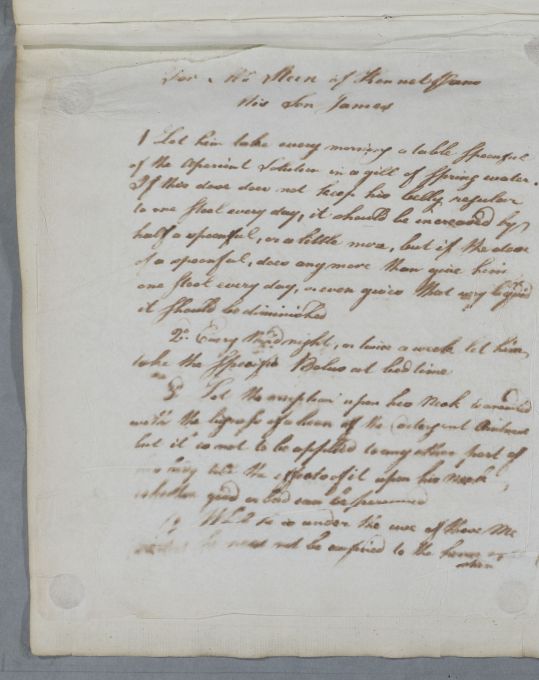 For Mr Meen of Kennetpans
His Son James
1 Let him take every morning a table Spoonful
of the Aperient Solution in a gill of Spring water.
If this dose does not keep his belly regular
to one Stool every day, it should be increased by
half a spoonful, or a little more, but if the dose
of a spoonful, does any more than give him
one Stool every day, or even gives that very liquid
it should be diminished
2o Every third night, or twice a week let him
take the Specific Bolus at bed time
3 Let the eruption upon his Neck be anointed
with the bigness of a bean of the Detergent Ointment
but it is not to be applied to any other part of
his body till the effects of it upon his Neck,
whether good or bad can be perceived
While he is under the use of these Me
he need not be confined to the house
when